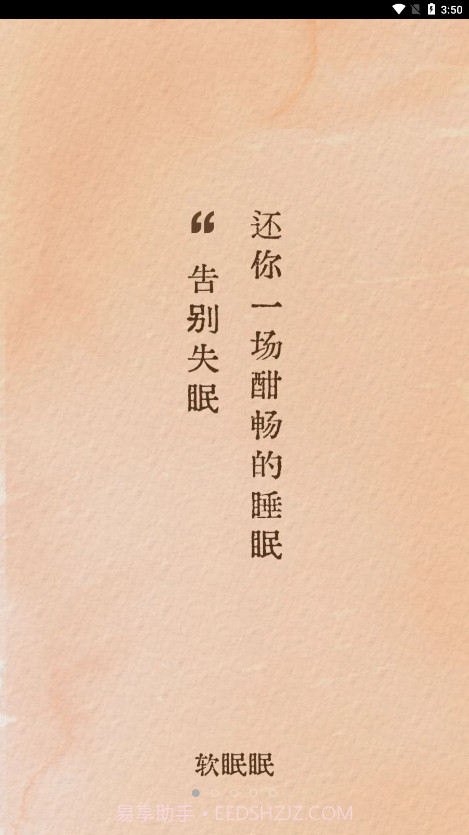 3:50
“告别失眠
还你一场酣畅的睡眠
软眠眠
易享助手·EEDSHZJZ.COM